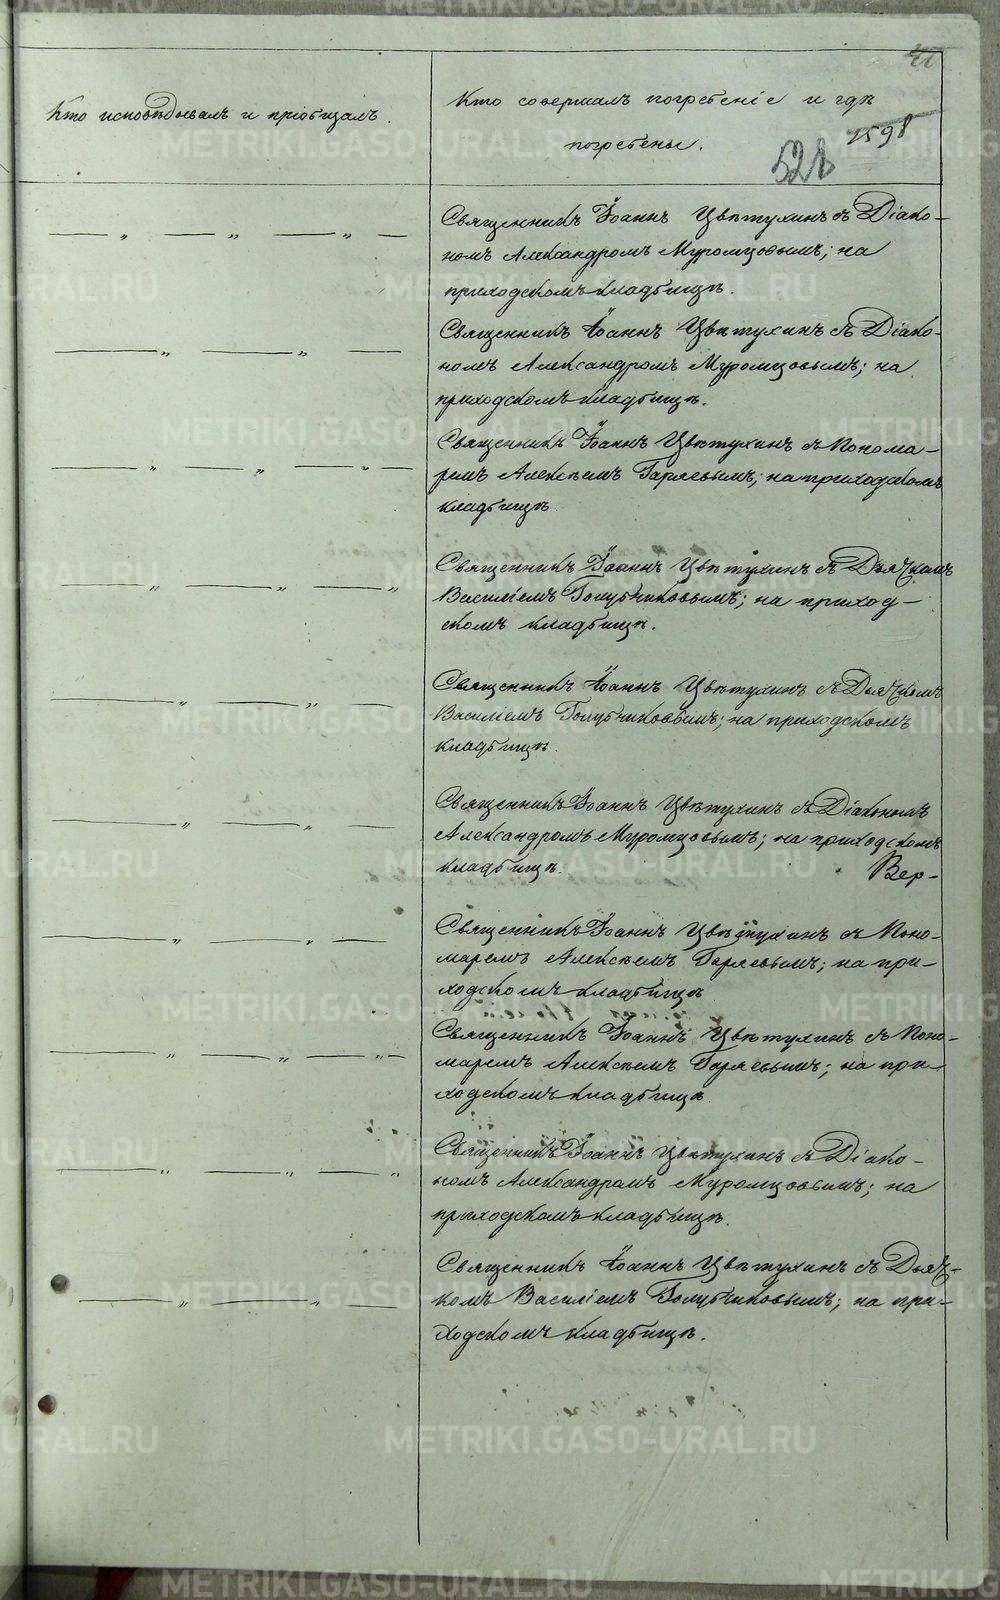 Кто исповѣдывалъ и пріобщалъ.
Кто совершалъ погребеніе и гдѣ
погребены.
1598
528
Священникъ Іоаннъ Цвѣтухинъ съ Діако-
номъ Александромъ Муромцовымъ; на
приходскомъ кладбищѣ.
Священникъ Іоаннъ Цвѣтухинъ съ Діако-
номъ Александромъ Муромцовымъ; на
приходскомъ кладбищѣ.
Священникъ Іоаннъ Цвѣтухинъ съ Понома-
ремъ Алексѣемъ Гаряевымъ; на приходскомъ
кладбищѣ.
Священникъ Іоаннъ Цвѣтухинъ съ Дьячкомъ
Василіемъ Голубчиковымъ; на приход-
скомъ кладбищѣ.
Священникъ Іоаннъ Цвѣтухинъ съ Дьячкомъ
Василіемъ Голубчиковымъ; на приходскомъ
кладбищѣ.
Священникъ Іоаннъ Цвѣтухинъ съ Діакономъ
Александромъ Муромцовымъ; на приходскомъ
кладбищѣ. Вер-
Священникъ Іоаннъ Цвѣтухинъ съ Поно-
маремъ Алексѣемъ Гаряевымъ; на при-
ходскомъ кладбищѣ
Священникъ Іоаннъ Цвѣтухинъ съ Поно-
маремъ Алексѣемъ Гаряевымъ; на при-
ходскомъ кладбищѣ.
Священникъ Іоаннъ Цвѣтухинъ съ Діако-
номъ Александромъ Муромцовымъ; на
приходскомъ кладбищѣ.
Священникъ Іоаннъ Цвѣтухинъ съ Дьяч-
комъ Василіемъ Голубчиковымъ; на при-
ходскомъ кладбищѣ.
METRIKI.GASO-URAL.RU